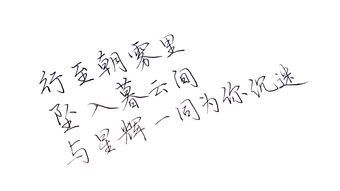 行至朝雾里
坠入暮云间
与星辉一同为你沉迷